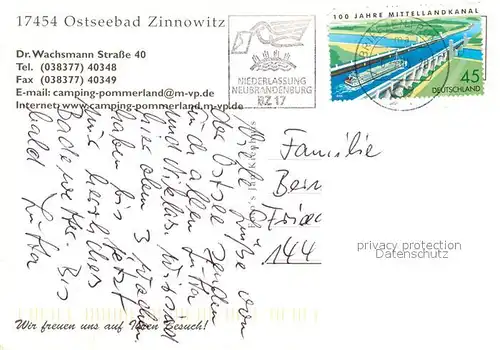 17454 Ostseebad Zinnowitz
Dr. Wachsmann Straße 40
Tel. (038377) 40348
Fax (038377) 40349
E-mail: camping-pommerland@m-vp.de
Internet: www.camping-pommerland.m-vp.de
NIEDERLASSUNG
NEUBRANDENBURG
BZ 17
100 JAHRE MITTELLANDKANAL
45
DEUTSCHLAND
Viele Grüße von
der Ostsee senden
Euch allen Jutta
und Niklas. Wir sind
hier oben 3 Wochen
haben bis jetzt
nur herrliches
Badewetter. Bis
bald Jutta
Familie
144
privacy protection
Datenschutz
Wir freuen uns auf Ihren Besuch!